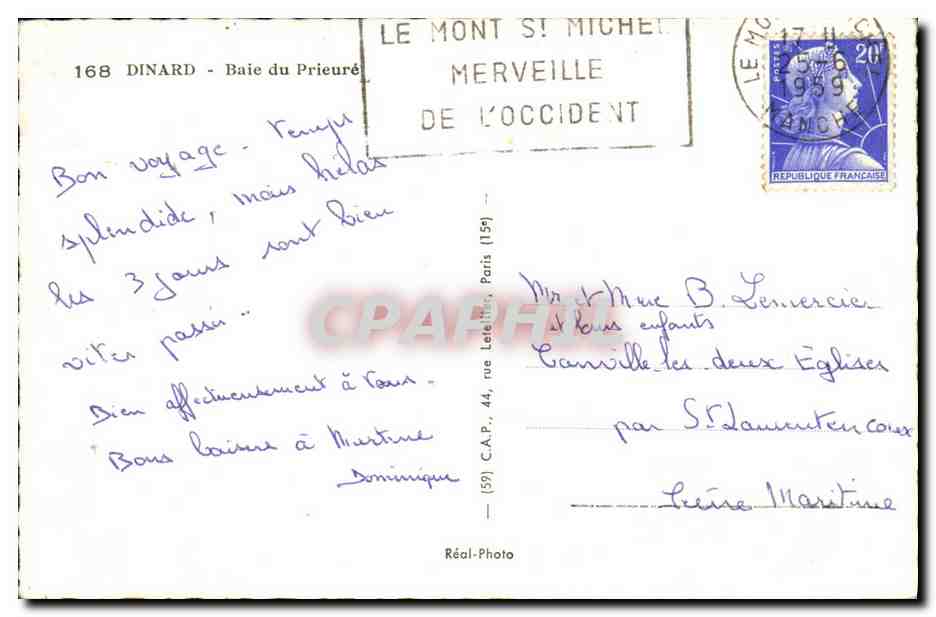 168 DINARD - Baie du Prieuré
LE MONT St MICHEL
MERVEILLE
DE L'OCCIDENT
LE MO
17 H
25-6
1959
MANCHE
POSTES
20F
REPUBLIQUE FRANÇAISE
Bon voyage - Temps
splendide, mais hélas
les 3 jours sont bien
vites passés..
Bien affectueusement à vous -
Bons baisers à Martine
Dominique
(59) C.A.P., 44, rue Letellier, Paris (15e)
CPAPHIL
Mr et Mme B. Lemercier
et leurs enfants
Canville les deux Églises
par St Laurent en Caux
Seine Maritime
Réal-Photo